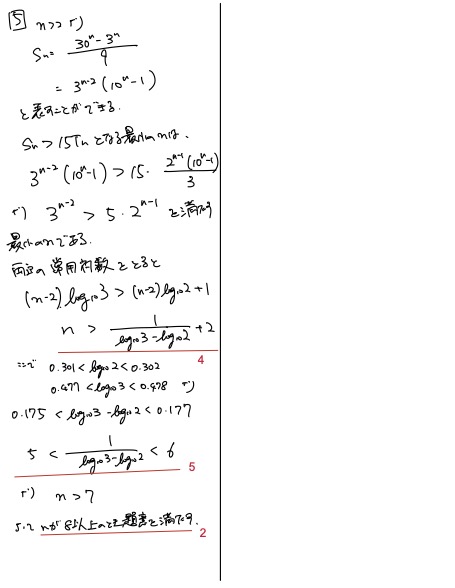 5 n>2 より
Sn = (30^n - 3^n)/9
= 3^{n-2}(10^n - 1)
と表すことができる.
Sn > 15Tn となる最小のnは.
3^{n-2}(10^n - 1) > 15・ 2^{n-1}(10^n - 1)/3
より 3^{n-2} > 5・2^{n-1} を満たす
最小のnである.
両辺の常用対数をとると
(n-2)log₁₀3 > (n-2)log₁₀2 + 1
n > 1/(log₁₀3 - log₁₀2) + 2
4
ここで 0.301 < log₁₀2 < 0.302
0.477 < log₁₀3 < 0.478 より
0.175 < log₁₀3 - log₁₀2 < 0.177
5 < 1/(log₁₀3 - log₁₀2) < 6
5
より n > 7
よって nが8以上のとき題意を満たす.
2